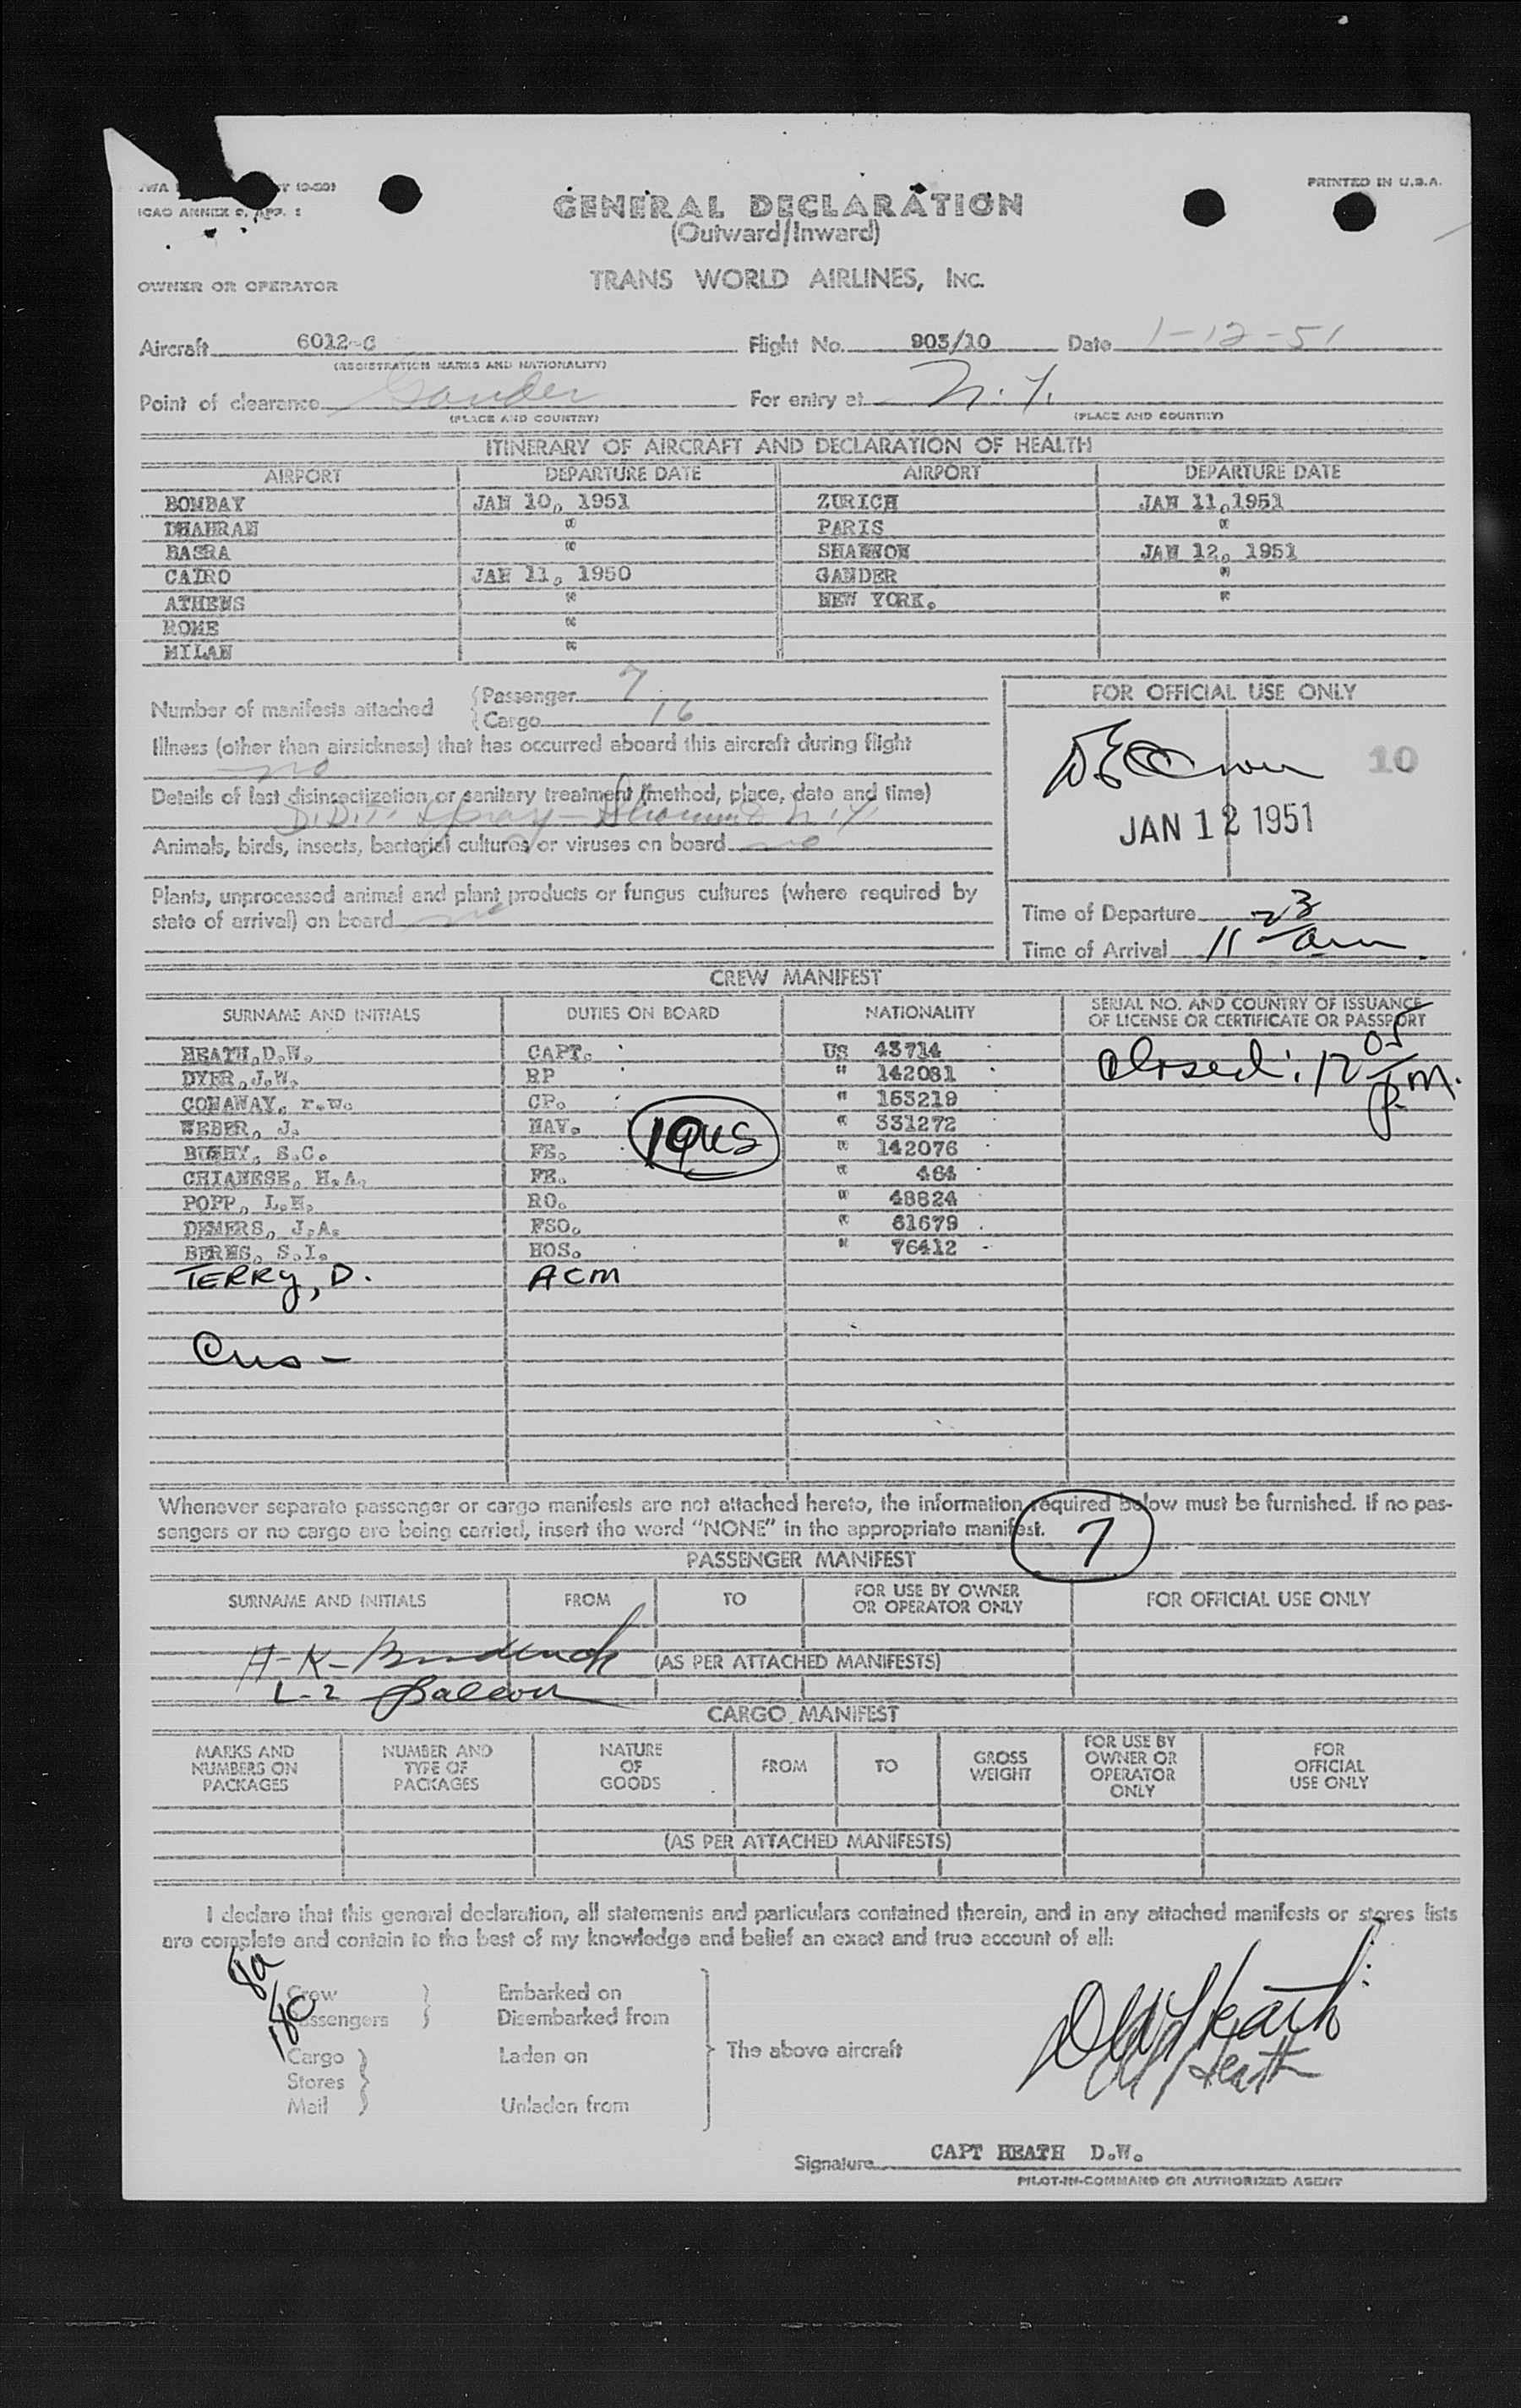 PRINTED IN U.S.A.
ICAO ANNEX 9, APP. 1
GENERAL DECLARATION
(Outward/Inward)
OWNER OR OPERATOR
TRANS WORLD AIRLINES, INC.
Aircraft 6012-C Flight No. 903/10 Date 1-12-51
(REGISTRATION MARKS AND NATIONALITY)
Point of clearance Gander For entry at N.Y.
(PLACE AND COUNTRY) (PLACE AND COUNTRY)
ITINERARY OF AIRCRAFT AND DECLARATION OF HEALTH
AIRPORT DEPARTURE DATE AIRPORT DEPARTURE DATE
BOMBAY JAN 10, 1951 ZURICH JAN 11,1951
DHAHRAN " PARIS "
BASRA " SHANNON JAN 12, 1951
CAIRO JAN 11, 1950 GANDER "
ATHENS " NEW YORK. "
ROME "
MILAN "
Number of manifests attached Passenger 7
Cargo 16
FOR OFFICIAL USE ONLY
Illness (other than airsickness) that has occurred aboard this aircraft during flight
no
10
Details of last disinsectization or sanitary treatment (method, place, date and time)
D.D.T. Spray - Shannon & N.Y.
JAN 12 1951
Animals, birds, insects, bacterial cultures or viruses on board no
Plants, unprocessed animal and plant products or fungus cultures (where required by
state of arrival) on board no
Time of Departure
Time of Arrival 11 23 am
CREW MANIFEST
SURNAME AND INITIALS DUTIES ON BOARD NATIONALITY SERIAL NO. AND COUNTRY OF ISSUANCE
OF LICENSE OR CERTIFICATE OR PASSPORT
HEATH,D.W. CAPT. US 43714 Closed: 12 05 p.m.
DYER,J.W. RP " 142081
CONAWAY, r.w. CP. " 163219
WEBER, J. NAV. " 331272
10 US
BUSHY, S.C. FE. " 142076
CHIANESE, H.A. FE. " 464
POPP, L.H. RO. " 48824
DEMERS, J.A. FSO. " 61679
BERNS, S.I. HOS. " 76412
TERRY, D. ACM
Cus -
Whenever separate passenger or cargo manifests are not attached hereto, the information required below must be furnished. If no pas-
sengers or no cargo are being carried, insert the word "NONE" in the appropriate manifest.
7
PASSENGER MANIFEST
SURNAME AND INITIALS FROM TO FOR USE BY OWNER
OR OPERATOR ONLY FOR OFFICIAL USE ONLY
H-K-
(AS PER ATTACHED MANIFESTS)
L-2
CARGO MANIFEST
MARKS AND
NUMBERS ON
PACKAGES
NUMBER AND
TYPE OF
PACKAGES
NATURE
OF
GOODS
FROM
TO
GROSS
WEIGHT
FOR USE BY
OWNER OR
OPERATOR
ONLY
FOR
OFFICIAL
USE ONLY
(AS PER ATTACHED MANIFESTS)
I declare that this general declaration, all statements and particulars contained therein, and in any attached manifests or stores lists
are complete and contain to the best of my knowledge and belief an exact and true account of all:
Crew Embarked on
Passengers Disembarked from
Cargo Laden on The above aircraft
Stores
Mail Unladen from
DW Heath
DW Heath
Signature CAPT HEATH D.W.
PILOT-IN-COMMAND OR AUTHORIZED AGENT